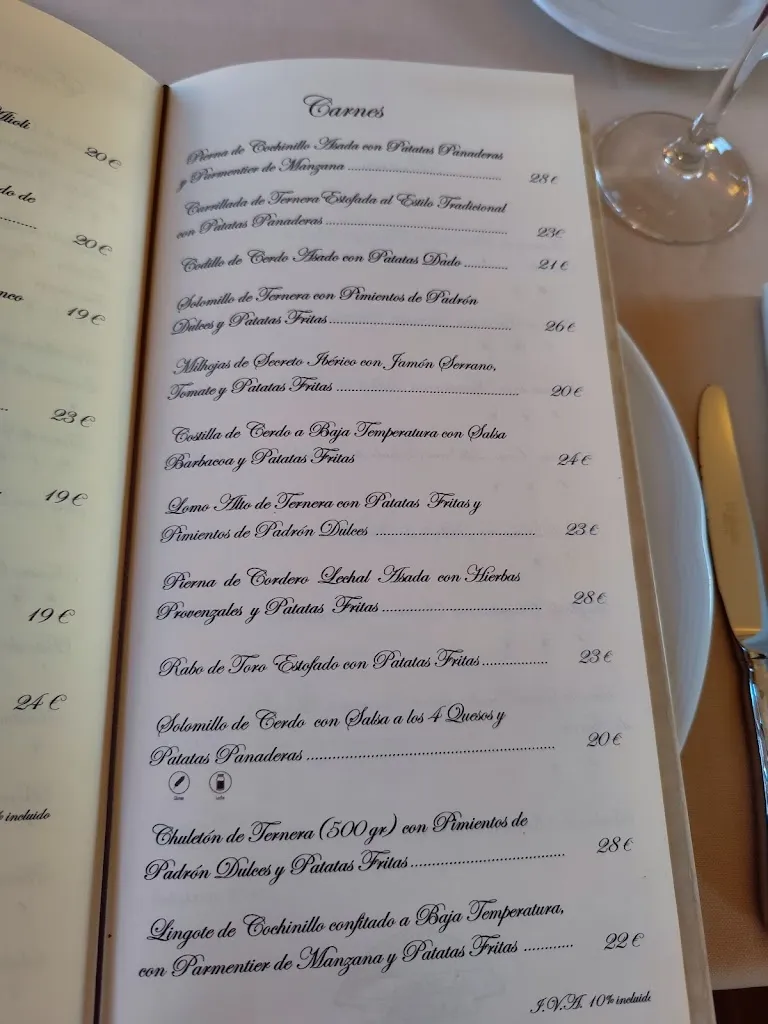 Alioli
20 €
do de
20 €
nco
19 €
23 €
19 €
19 €
24 €
incluido
Carnes
Pierna de Cochinillo Asada con Patatas Panaderas
y Parmentier de Manzana 28 €
Carrillada de Ternera Estofada al Estilo Tradicional
con Patatas Panaderas 23€
Codillo de Cerdo Asado con Patatas Dado 21 €
Solomillo de Ternera con Pimientos de Padrón
Dulces y Patatas Fritas 26 €
Milhojas de Secreto Ibérico con Jamón Serrano,
Tomate y Patatas Fritas 20€
Costilla de Cerdo a Baja Temperatura con Salsa
Barbacoa y Patatas Fritas 24 €
Lomo Alto de Ternera con Patatas Fritas y
Pimientos de Padrón Dulces 23 €
Pierna de Cordero Lechal Asada con Hierbas
Provenzales y Patatas Fritas 28 €
Rabo de Toro Estofado con Patatas Fritas 23 €
Solomillo de Cerdo con Salsa a los 4 Quesos y
Patatas Panaderas 20 €
Chuletón de Ternera (500 gr) con Pimientos de
Padrón Dulces y Patatas Fritas 28 €
Lingote de Cochinillo confitado a Baja Temperatura,
con Parmentier de Manzana y Patatas Fritas 22 €
I.V.A. 10% incluido